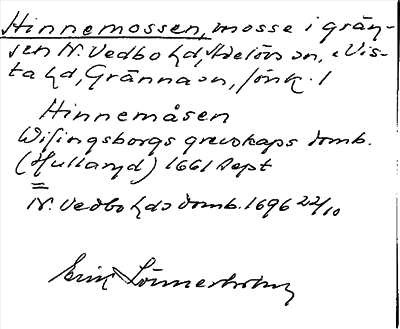 Hinnemossen, mosse i grän-
sen N. Vedbo hd, Adelövs sn, Vis-
ta hd, Gränna sn, Jönk. l
Hinnemåsen
Wisingsborgs grevskaps domb.
(Hullaryd) 1661 Sept
=
N. Vedbo hds domb. 1696 22/10
Erik